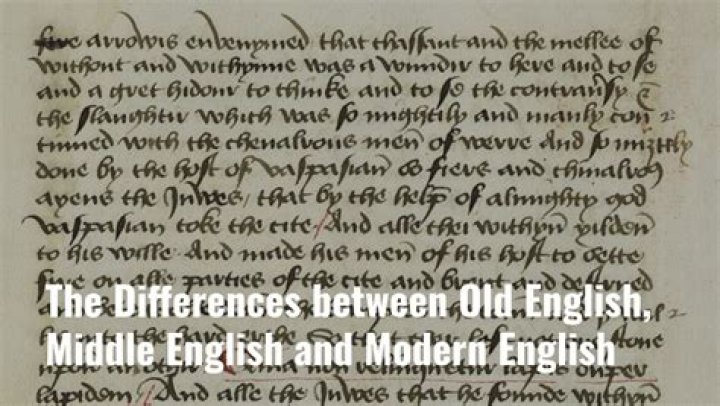 fire arrowis envenymed that thassaut and the mellee of
without and withynne was a wundir to here and to se
and a gret hidour to thinke and to se the contraūsy &
the slaughtir which was so mightily and manly con
tinued with the chevalrous men of werre And so miztely
done by the host of vaspasian so fiers and chivalroꝰ
ayens the Juwes, that by the help of almighty god
vaspasian toke the cite / And alle thei withyn̄ yilden̄
to his wille And made his men̄ of his host to sette
fire on alle parties of the cite and brent and destried
The Differences between Old English,
Middle English and Modern English
upon relinquetur lapis super
lapidem / And alle the Juwes that he founde withyn̄